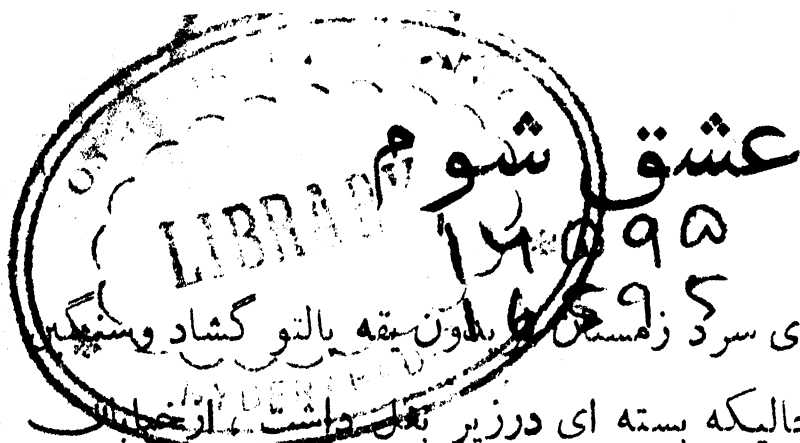 عشق شوم
LIBRARY
۱۶۵۹۵
16595
ی سرد زمستان بدون یقه پالتو گشاد وسنگین
حالیکه بسته ای درزیر بغل داشت ، از خیابان